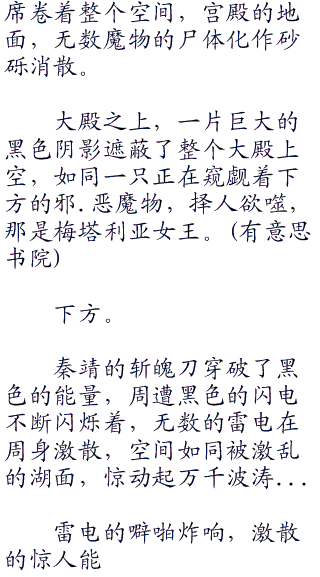 席卷着整个空间，宫殿的地
面，无数魔物的尸体化作砂
砾消散。
大殿之上，一片巨大的
黑色阴影遮蔽了整个大殿上
空，如同一只正在窥觑着下
方的邪.恶魔物，择人欲噬，
那是梅塔利亚女王。(有意思
书院)
下方。
秦靖的斩魄刀穿破了黑
色的能量，周遭黑色的闪电
不断闪烁着，无数的雷电在
周身激散，空间如同被激乱
的湖面，惊动起万千波涛...
雷电的噼啪炸响，激散
的惊人能